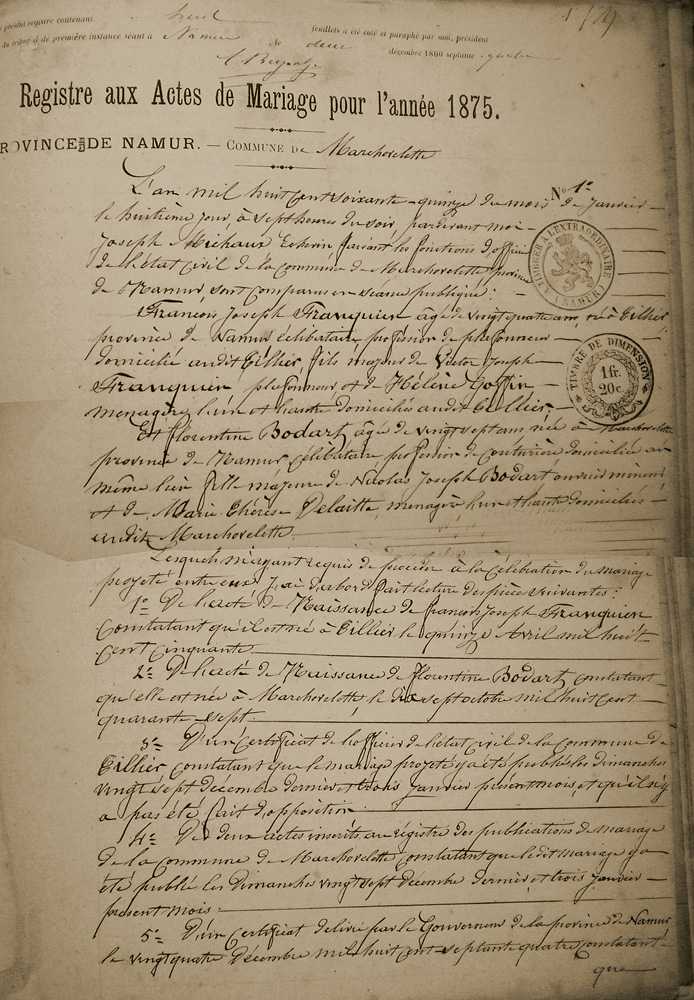 présent registre contenant huit feuillets a été coté et paraphé par moi, président
du tribunal de première instance séant à Namur le deux décembre 1800 septante quatre
1
Registre aux Actes de Mariage pour l'année 1875.
PROVINCE DE NAMUR. — COMMUNE DE Marchovelette
N° 1er
L'an mil huit cent soixante-quinze du mois de Janvier
le huitième jour, à sept heures du soir, pardevant moi
Joseph Michaux Echevin faisant les fonctions d'officier
de l'état civil de la commune de Marchovelette province
de Namur, sont comparus en séance publique:
TIMBRE EXTRAORDINAIRE
(NAMUR)
François Joseph Franquien âgé de vingt quatre ans, né à Tillier
province de Namur célibataire profession de plafonneur
domicilié audit Tillier, fils majeur de Victor Joseph
Franquien plafonneur et de Hélène Goffin
menagère, l'un et l'autre domiciliés audit Tillier,
TIMBRE DE DIMENSION
1 fr.
20 c.
Et Florentine Bodart, âgée de vingt sept ans née à Marchovelette
province de Namur, célibataire profession de couturière domiciliée au
même lieu fille majeure de Nicolas Joseph Bodart ouvrier mineur
et de Marie Thérèse Delaitte, menagère l'un et l'autre domiciliés
audit Marchovelette.
Lesquels m'ayant requis de procéder à la célébration du mariage
projeté entre eux, J'ai d'abord fait lecture des pièces suivantes:
1° De l'acte de Naissance de françois Joseph Franquien
constatant qu'il est né à Tillier le quinze Avril mil huit
cent cinquante.
2° De l'acte de Naissance de florentine Bodart constatant
qu'elle est née à Marchovelette le dix sept octobre mil huit cent
quarante-sept.
3° D'un certificat de l'officier de l'état civil de la commune de
Tillier constatant que le mariage projeté y a été publié les dimanches
vingt sept decembre dernier et trois Janvier présent mois, et qu'il n'y
a pas été fait d'opposition.
4° De deux actes inscrits au régistre des publications de mariage
de la commune de Marchovelette constatant que ledit mariage y a
été publié les Dimanches vingt sept décembre dernier et trois janvier
présent mois:
5° D'un certificat délivré par le Gouverneur de la province de Namur
le vingt quatre Décembre mil huit cent septante quatre constatant
que